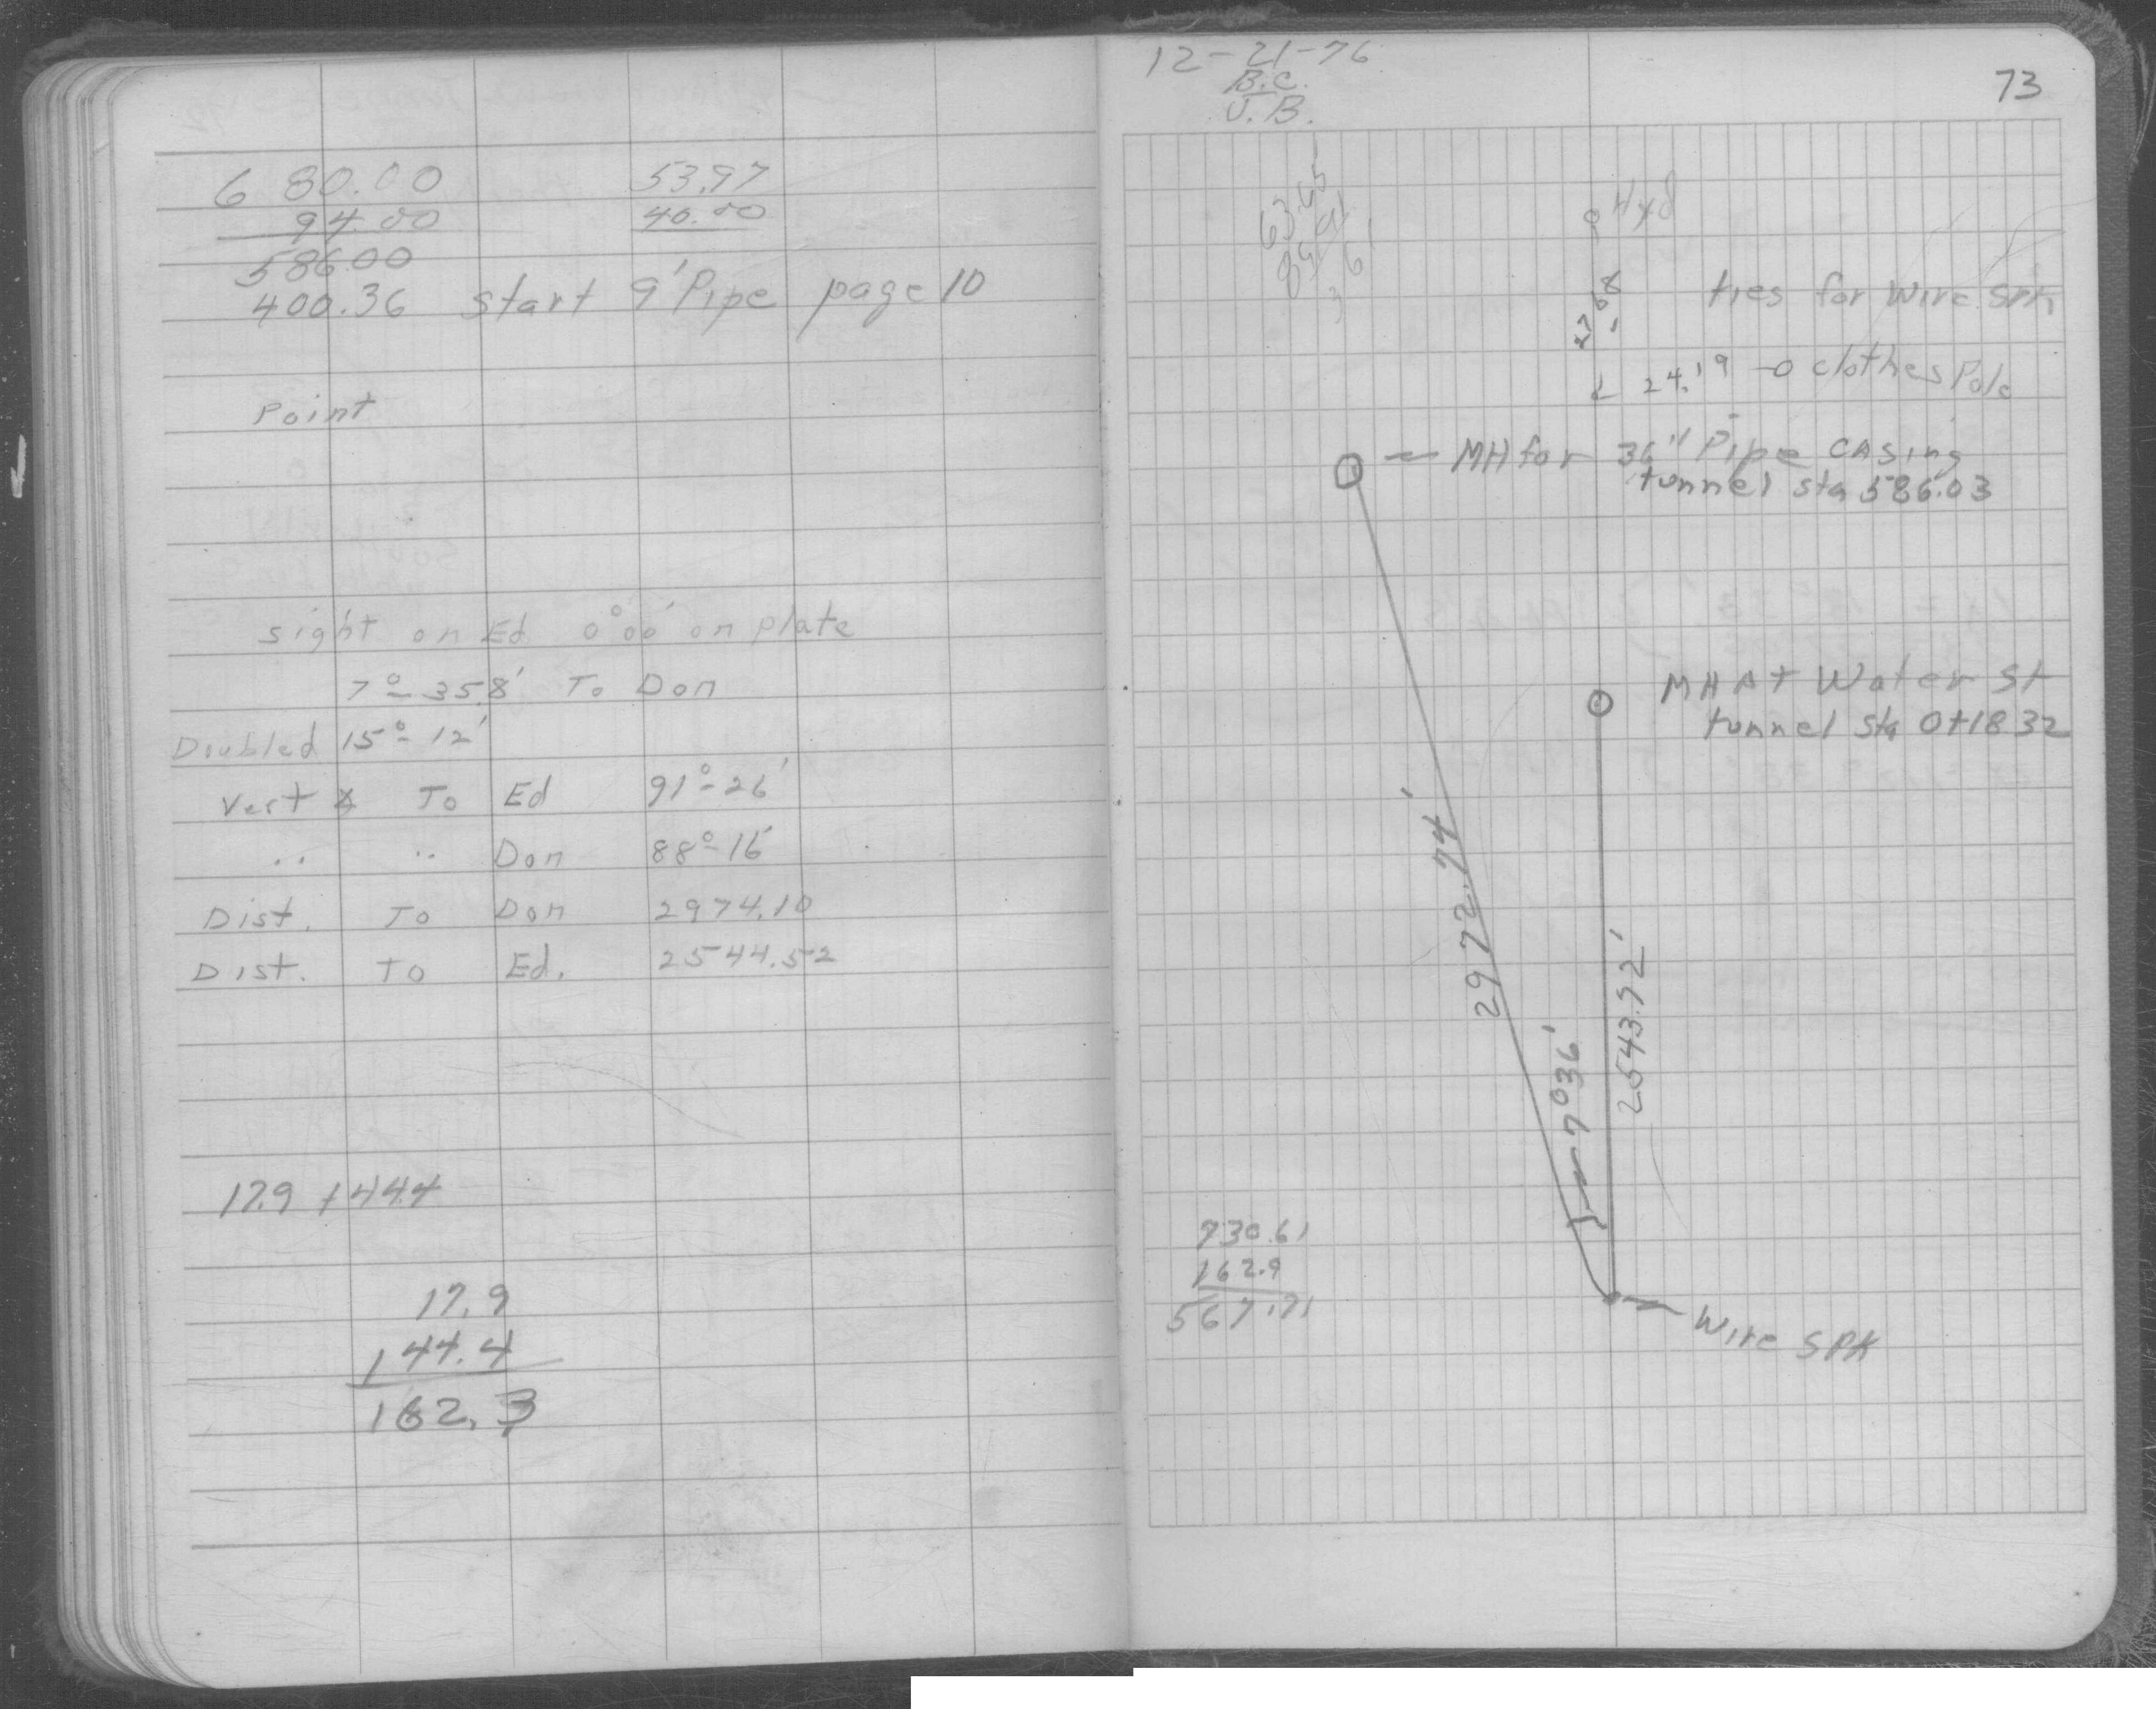 680.00 53.97
94.00 40.00
586.00
400.36 start 9' Pipe page 10
Point
sight on Ed 0°00' on plate
7°-35.8' To Don
Doubled 15°-12'
Vert ∡ To Ed 91°-26'
" " Don 88°-16'
Dist. To Don 2974.10
Dist. To Ed. 2544.52
17.9 + 144.4
17.9
144.4
162.3
12-21-76
B.C.
J.B.
73
Hyd
ties for Wire Spk
24.19 clothes Pole
MH for 36" Pipe CASing
tunnel sta 586.03
MH At Water St
tunnel Sta 0+18.32
2972.74'
7°36'
2543.72'
730.61
162.9
567.71
Wire SPK